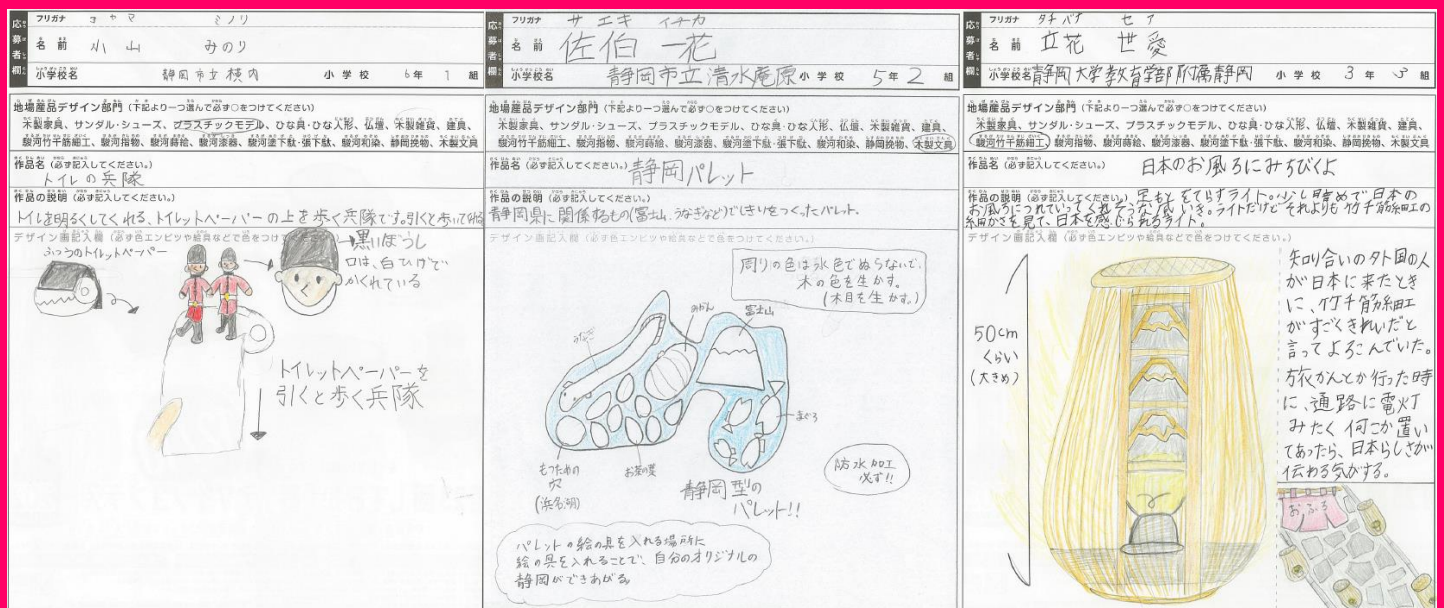 応募者欄
フリガナ コヤマ ミノリ
名前 小山 みのり
小学校名 静岡市立横内 小学校 6年 1 組
地場産品デザイン部門（下記より一つ選んで必ず○をつけてください）
木製家具、サンダル・シューズ、プラスチックモデル、ひな具・ひな人形、仏壇、木製雑貨、建具、
駿河竹千筋細工、駿河指物、駿河蒔絵、駿河漆器、駿河塗下駄・張下駄、駿河和染、静岡挽物、木製文具
作品名（必ず記入してください。）
トイレの兵隊
作品の説明（必ず記入してください。）
トイレを明るくしてくれる、トイレットペーパーの上を歩く兵隊です。引くと歩いて
デザイン画記入欄（必ず色エンピツや絵具などで色をつけてください。）
ふつうのトイレットペーパー
黒いぼうし
口は、白ひげで
かくれている
トイレットペーパーを
引くと歩く兵隊
応募者欄
フリガナ サエキ イチカ
名前 佐伯 一花
小学校名 静岡市立清水庵原 小学校 5年 2 組
地場産品デザイン部門（下記より一つ選んで必ず○をつけてください）
木製家具、サンダル・シューズ、プラスチックモデル、ひな具・ひな人形、仏壇、木製雑貨、建具、
駿河竹千筋細工、駿河指物、駿河蒔絵、駿河漆器、駿河塗下駄・張下駄、駿河和染、静岡挽物、木製文具
作品名（必ず記入してください。） 静岡パレット
作品の説明（必ず記入してください。）
静岡県に関係するもの(富士山、うなぎなど)でしきりをつくったパレット。
デザイン画記入欄（必ず色エンピツや絵具などで色をつけてください。）
周りの色は水色でぬらないで、
木の色を生かす。
(木目を生かす。)
みかん
富士山
うなぎ
まぐろ
もつための
穴
(浜名湖)
お茶の葉
静岡型の
パレット!!
防水加工
必ず!!
パレットの絵の具を入れる場所に
絵の具を入れることで、自分のオリジナルの
静岡ができあがる
応募者欄
フリガナ タチバナ セア
名前 立花 世愛
小学校名 静岡大学教育学部附属静岡 小学校 3年 3 組
地場産品デザイン部門（下記より一つ選んで必ず○をつけてください）
木製家具、サンダル・シューズ、プラスチックモデル、ひな具・ひな人形、仏壇、木製雑貨、建具、
駿河竹千筋細工、駿河指物、駿河蒔絵、駿河漆器、駿河塗下駄・張下駄、駿河和染、静岡挽物、木製文具
作品名（必ず記入してください。） 日本のお風ろにみちびくよ
作品の説明（必ず記入してください。） 足もとをてらすライト。少し暗めで日本の
お風ろにつれていってくれそうなふんいき。ライトだけどそれよりも竹千筋細工の
細かさを見て、日本を感じられるライト。
デザイン画記入欄（必ず色エンピツや絵具などで色をつけてください。）
50cm
くらい
(大きめ)
知り合いの外国の人
が日本に来たとき
に、竹千筋細工
がすごくきれいだと
言ってよろこんでいた。
旅かんとか行った時
に、通路に電灯
みたく何こか置い
てあったら、日本らしさが
伝わる気がする。
おふろ